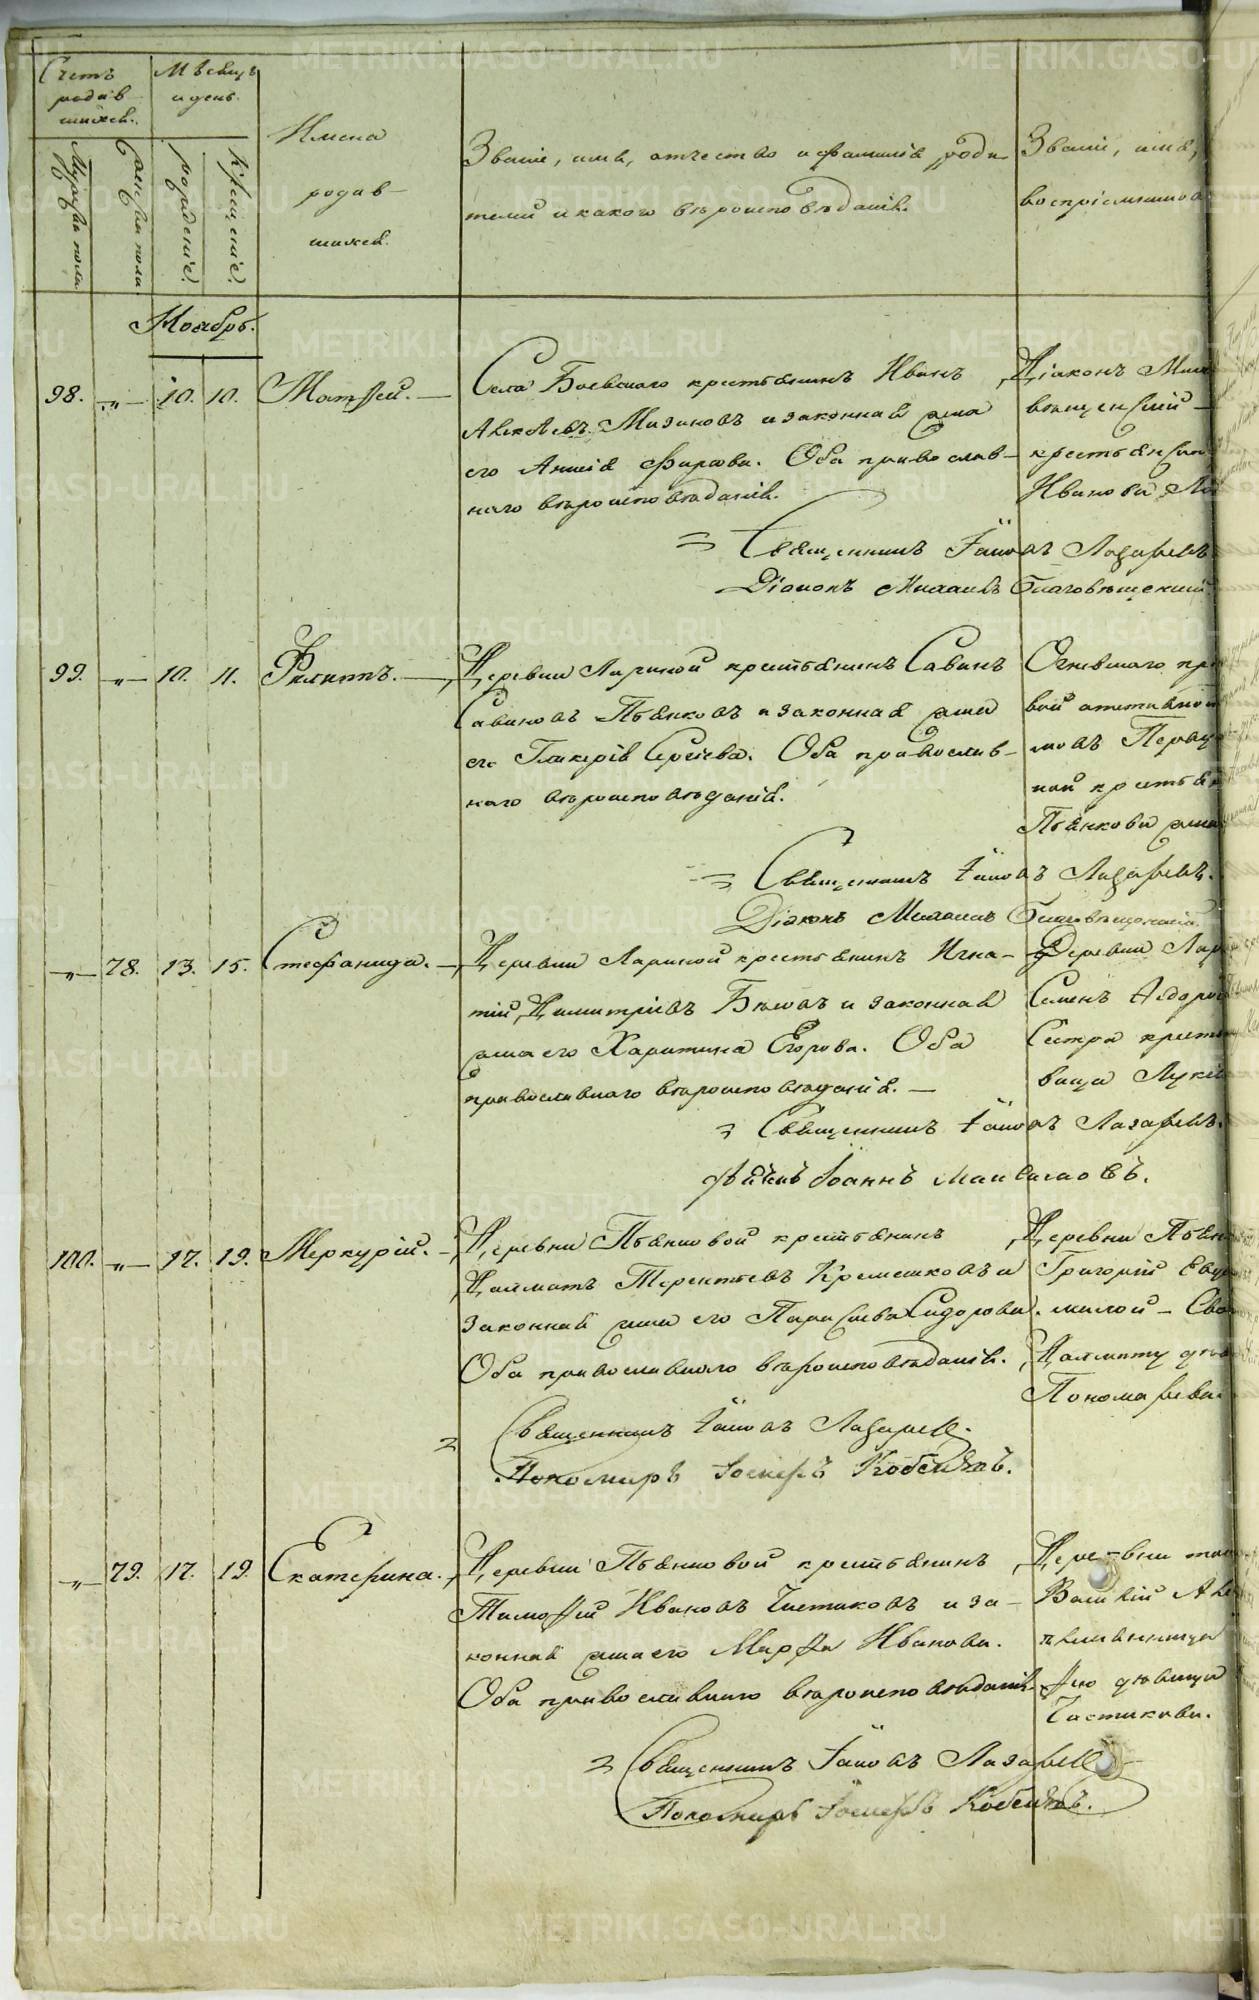 Счетъ
родив-
шихся.
Мѣсяцъ
и день.
Имена
родив-
шихся.
Мужеска пола.
Женска пола.
рожденіе.
крещеніе.
Званіе, имя, отчество и фамилія роди-
телей и какого вѣроисповѣданія.
Званіе, имя,
воспріемниковъ
Ноябрь.
98. „ 10. 10. Матѳей.
Села Боевскаго крестьянинъ Иванъ
Мизиновъ и законная жена
его Анисія Фирсова. Оба православ-
наго вѣроисповѣданія.
Діаконъ Миха
вѣщенскій
крестьянска
Иванова
Священникъ Іаковъ Лазаревъ
Діаконъ Михаилъ Благовѣщенскій
99. „ 10. 11. Филиппъ.
Деревни Лариной крестьянинъ Савинъ
Савиновъ Пьянковъ и законная жена
его Гликерія Сергіева. Оба православ-
наго вѣроисповѣданія.
Огневскаго
вой отставной
мовъ
ной крестья
Пьянкова жена
Священникъ Іаковъ Лазаревъ.
Діаконъ Михаилъ Благовѣщенскій
„ 78. 13. 15. Стефанида.
Деревни Лариной крестьянинъ Игна-
тій Димитріевъ Бѣловъ и законная
жена его Харитина Егорова. Оба
православнаго вѣроисповѣданія.
Деревни Лар
Семенъ Ѳедоро
Сестра кресть
вица
Священникъ Іаковъ Лазаревъ.
Іоаннъ
100. „ 17. 19. Меркурій.
Деревни Пьянковой крестьянинъ
Далматъ Терентьевъ Кремешковъ и
законная жена его Параскева Сидорова.
Оба православнаго вѣроисповѣданія.
Деревни Пьян
Григорій
Далмату
Пономарева.
Священникъ Іаковъ Лазаревъ.
Пономарь Іосифъ
„ 79. 17. 19. Екатерина.
Деревни Пьянковой крестьянинъ
Тимоѳей Ивановъ Чистиковъ и за-
конная жена его Марѳа Иванова.
Оба православнаго вѣроисповѣданія.
Деревни той
племянница
дѣвица
Чистикова.
Священникъ Іаковъ Лазаревъ
Пономарь Іосифъ
METRIKI.GASO-URAL.RU